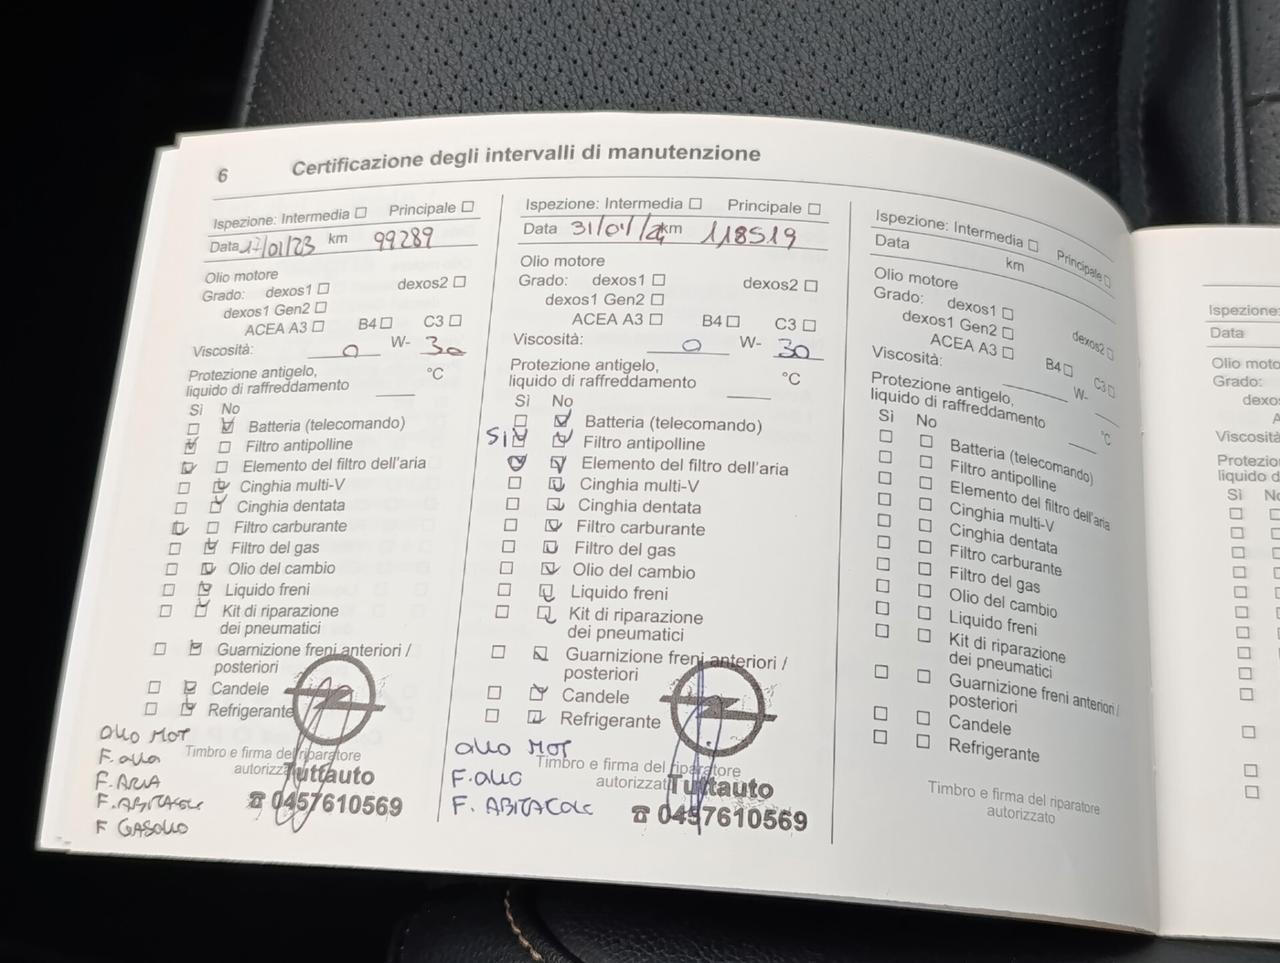 6 Certificazione degli intervalli di manutenzione
Ispezione: Intermedia Principale
Data 17/01/23 km 99289
Olio motore
Grado: dexos1 dexos2
dexos1 Gen2
ACEA A3 B4 C3
Viscosità: 0 W- 30
Protezione antigelo, °C
liquido di raffreddamento
Sì No
Batteria (telecomando)
Filtro antipolline
Elemento del filtro dell'aria
Cinghia multi-V
Cinghia dentata
Filtro carburante
Filtro del gas
Olio del cambio
Liquido freni
Kit di riparazione
dei pneumatici
Guarnizione freni anteriori /
posteriori
Candele
Refrigerante
OLIO MOT
F. OLIO
F. ARIA
F. ABITACOLO
F GASOLIO
Timbro e firma del riparatore
autorizzato
Tuttauto
☎ 0457610569
Ispezione: Intermedia Principale
Data 31/01/24 km 118519
Olio motore
Grado: dexos1 dexos2
dexos1 Gen2
ACEA A3 B4 C3
Viscosità: 0 W- 30
Protezione antigelo, °C
liquido di raffreddamento
Sì No
Batteria (telecomando)
SI Filtro antipolline
Elemento del filtro dell'aria
Cinghia multi-V
Cinghia dentata
Filtro carburante
Filtro del gas
Olio del cambio
Liquido freni
Kit di riparazione
dei pneumatici
Guarnizione freni anteriori /
posteriori
Candele
Refrigerante
OLIO MOT
F. OLIO
F. ABITACOLO
Timbro e firma del riparatore
autorizzat
Tuttauto
☎ 0457610569
Ispezione: Intermedia Principale
Data km
Olio motore
Grado: dexos1 dexos2
dexos1 Gen2
ACEA A3 B4 C3
Viscosità: W-
Protezione antigelo, °C
liquido di raffreddamento
Sì No
Batteria (telecomando)
Filtro antipolline
Elemento del filtro dell'aria
Cinghia multi-V
Cinghia dentata
Filtro carburante
Filtro del gas
Olio del cambio
Liquido freni
Kit di riparazione
dei pneumatici
Guarnizione freni anteriori /
posteriori
Candele
Refrigerante
Timbro e firma del riparatore
autorizzato
Ispezione:
Data
Olio moto
Grado:
dexo
A
Viscosità
Protezio
liquido d
Sì No